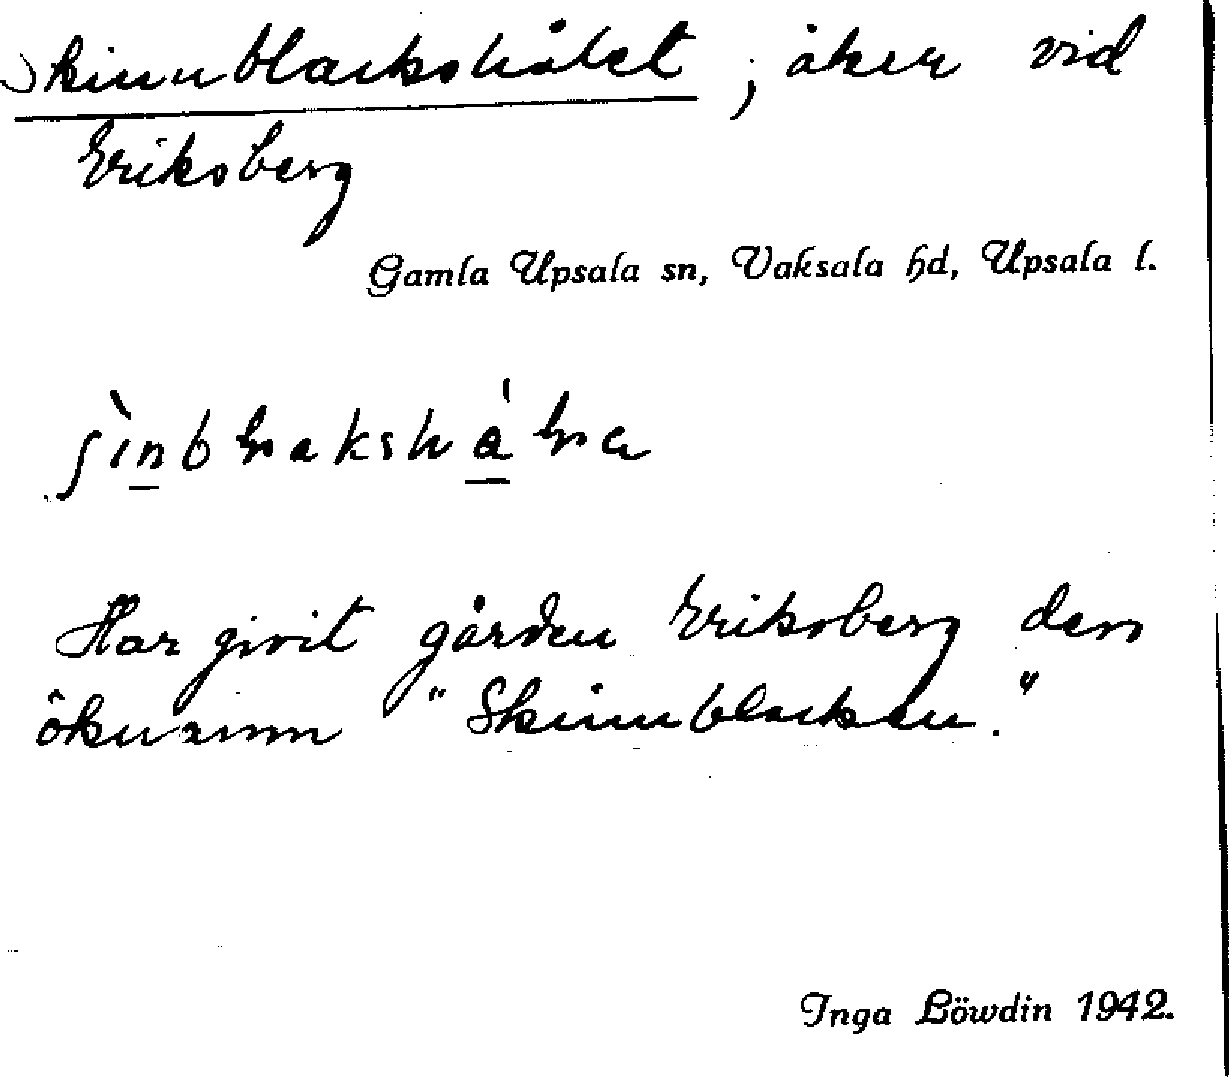 Skinnblackshålet, åker vid
Eriksberg
Gamla Upsala sn, Vaksala hd, Upsala l.
Har givit gården Eriksberg den
öknamn "Skinnblackan."
Inga Löwdin 1942.